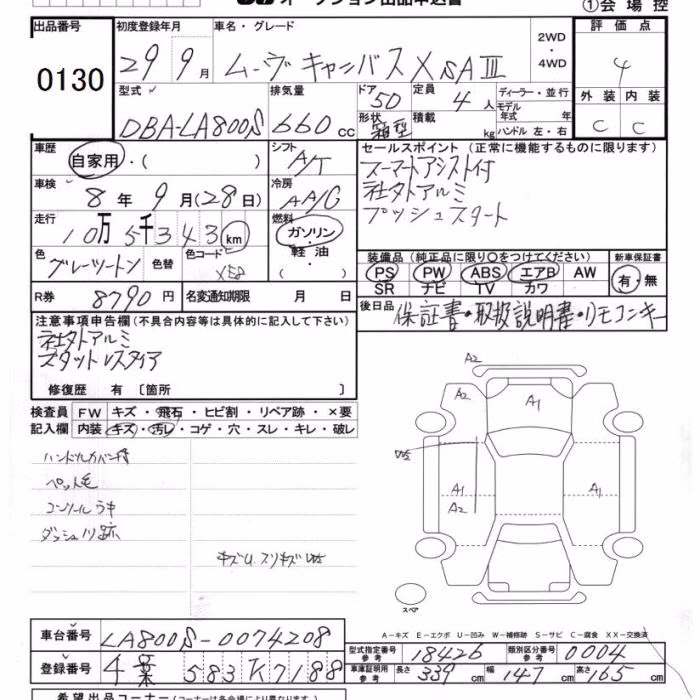 オークション出品申込書 ①会場控
出品番号 初度登録年月 車名・グレード 評価点
0130 29 9月 ムーヴキャンバス X SAⅢ 2WD・4WD 4
型式 排気量 ドア 定員 ディーラー・並行 外装 内装
DBA-LA800S 660cc 5D 4人 モデル年式 年式 C C
形状 箱型 積載 kg ハンドル 左・右
車歴 自家用・( ) シフト A/T
セールスポイント (正常に機能するものに限ります)
スーマートアシスト付
社外アルミ
プッシュスタート
車検 8年9月(28日) 冷房 AA/C
走行 10万5千343km 燃料 ガソリン・軽油
色 グレーツートン 色替 色コード XE8
装備品 (純正品に限り○をつけてください) 新車保証書
PS PW ABS エアB AW 有・無
SR ナビ TV カワ
R券 8790円 名変通知期限 月 日
後日品 保証書・取扱説明書・リモコンキー
注意事項申告欄 (不具合内容等は具体的に記入して下さい)
社外アルミ
スタットレスタイア
修復歴 有 〔箇所 〕
検査員 FW キズ・飛石・ヒビ割・リペア跡・×要
記入欄 内装 キズ・汚レ・コゲ・穴・スレ・キレ・破レ
ハンドルカバー付
ペット毛
コンソールうキ
ダッシュノリ跡
キズU、スリキズW2
A2
A2 A1
W2
A1 A1
A2
スペア
A−キズ E−エクボ U−凹み W−補修跡 S−サビ C−腐食 XX−交換済
車台番号 LA800S-0074208
型式指定番号 参考 18426 類別区分番号 参考 0004
登録番号 千葉 583 K 7188
車庫証明用 参考 長さ 339cm 幅 147cm 高さ 165cm
希望出品コーナー (コーナー名は各会場により異なります)